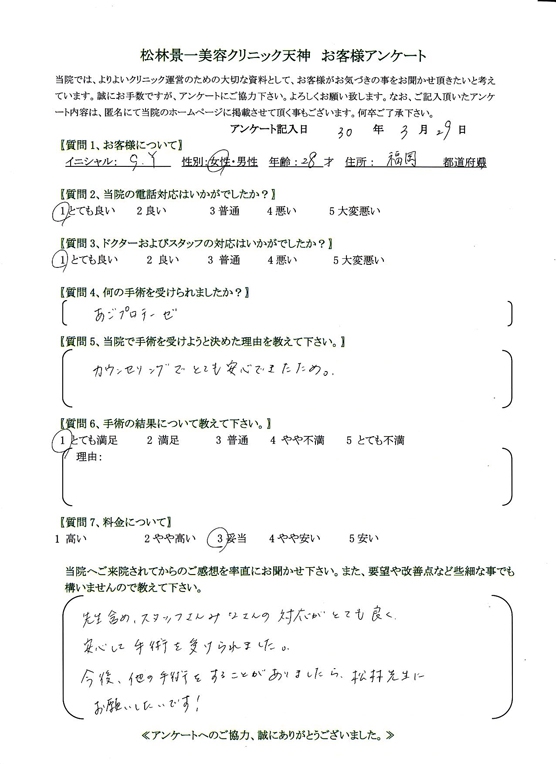 松林景一美容クリニック天神　お客様アンケート
当院では、よりよいクリニック運営のための大切な資料として、お客様がお気づきの事をお聞かせ頂きたいと考え
ています。誠にお手数ですが、アンケートにご協力下さい。よろしくお願い致します。なお、ご記入頂いたアンケ
ート内容は、匿名にて当院のホームページに掲載させて頂く事もございます。何卒ご了承下さい。
アンケート記入日　30　年　3　月　29　日
【質問1、お客様について】
イニシャル：　G.Y　性別：女性・男性　年齢：28才　住所：　福岡　都道府県
【質問2、当院の電話対応はいかがでしたか？】
1 とても良い　2 良い　3 普通　4 悪い　5 大変悪い
【質問3、ドクターおよびスタッフの対応はいかがでしたか？】
1 とても良い　2 良い　3 普通　4 悪い　5 大変悪い
【質問4、何の手術を受けられましたか？】
あごプロテーゼ
【質問5、当院で手術を受けようと決めた理由を教えて下さい。】
カウンセリングでとても安心できたため。
【質問6、手術の結果について教えて下さい。】
1 とても満足　2 満足　3 普通　4 やや不満　5 とても不満
理由：
【質問7、料金について】
1 高い　2 やや高い　3 妥当　4 やや安い　5 安い
当院へご来院されてからのご感想を率直にお聞かせ下さい。また、要望や改善点など些細な事でも
構いませんので教えて下さい。
先生含め、スタッフさんみなさんの対応がとても良く、
安心して手術を受けられました。
今後、他の手術をすることがありましたら、松林先生に
お願いしたいです！
≪アンケートへのご協力、誠にありがとうございました。≫